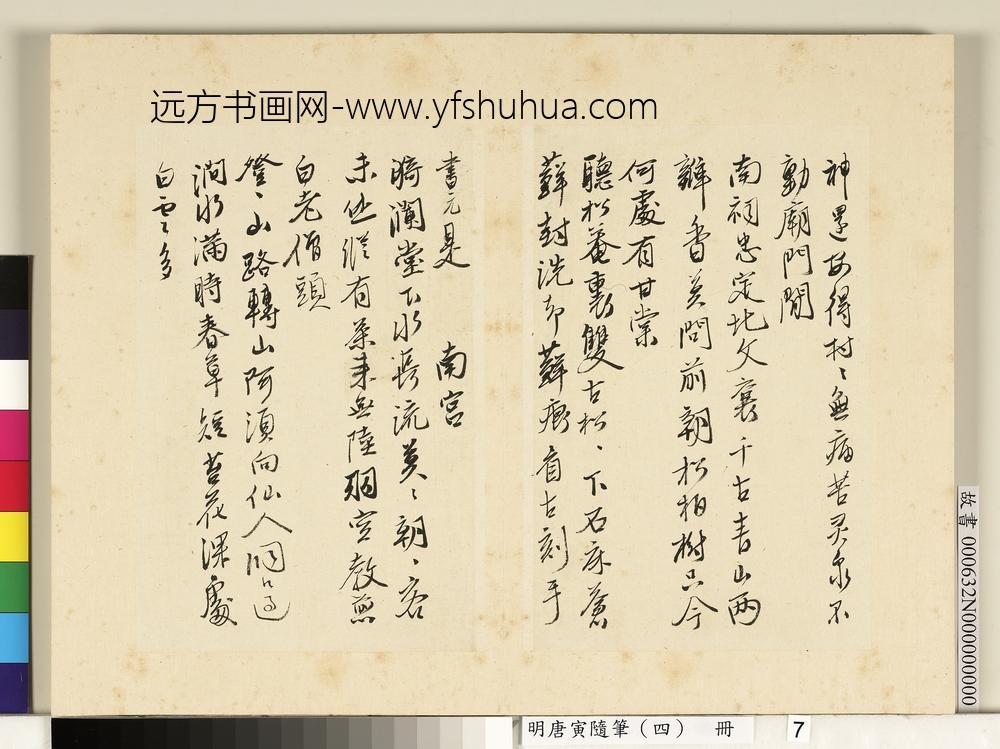 远方书画网-www.yfshuhua.com
神還安得村〻無病苦灵泉不
動廟門閒
南祠忠定北文襄千古青山兩
瓣香莫問前朝松柏樹只今
何處有甘棠
聽松菴裏雙古松〻下石床蒼
蘚封洗却蘚痕看古刻手
書元是 南宮
漪瀾堂下水長流莫〻朝〻客
未休縱有茶來無陸羽空教煎
白老僧頭
登〻山路轉山阿須向仙人洞口過
澗水滿時春草短苔花深處
白雲多
故書 000632N000000000
明唐寅隨筆（四） 冊 7